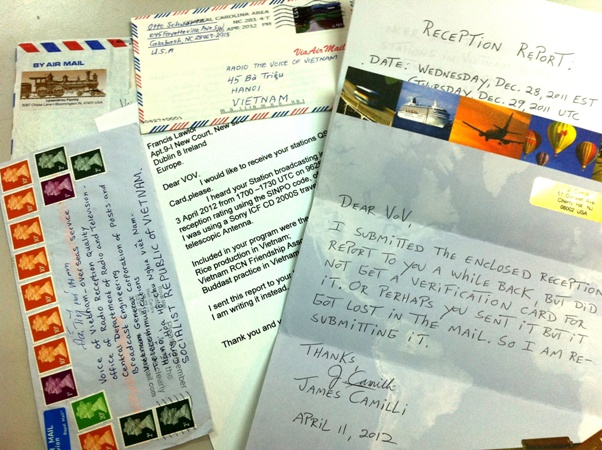 BY AIR MAIL
Locomotive Publishing
Otto Schu
CAROLINA AREA
NC 283 4 T
APR 2012 PM
Calabash, NC
U.S.A
Via Air Mail
RADIO THE VOICE OF VIETNAM
45 Bà Triệu
HANOI
VIETNAM
Francis Lawlor
Apt 9-I New Court, New
Dublin 8 Ireland
Europe.
Dear VOV.
I would like to receive your stations QS
Card, please.
I heard your Station broadcasting
3 April 2012 from 1700 –1730 UTC on 962
reception rating using the SINPO code, of
I was using a Sony ICF CD 2000S travel
telescopic Antenna.
Included in your program were the
Rice production in Vietnam;
Vietnam RCN Friendship Asso
Buddast practice in Vietnam
I sent this report to your
I am writing it instead,
Thank you and
Vietnam overseas service
Voice of Vietnam
Office of Radio Reception Quality.
Department of Radio and Television.
Central Department of Posts and
Broadcast engineering
Vietnam General Corporation of
SOCIALIST REPUBLIC of VIETNAM.
Royal Mail
RECEPTION REPORT.
DATE: WEDNESDAY, DEC. 28, 2011 EST
THURSDAY DEC. 29, 2011 UTC
DEAR VOV,
I SUBMITTED THE ENCLOSED RECEPTION
REPORT TO YOU A WHILE BACK, BUT DID
NOT GET A VERIFICATION CARD FOR
IT. OR PERHAPS YOU SENT IT BUT IT
GOT LOST IN THE MAIL. SO I AM RE-
SUBMITTING IT.
THANKS
J Camilli
JAMES CAMILLI
APRIL 11, 2012